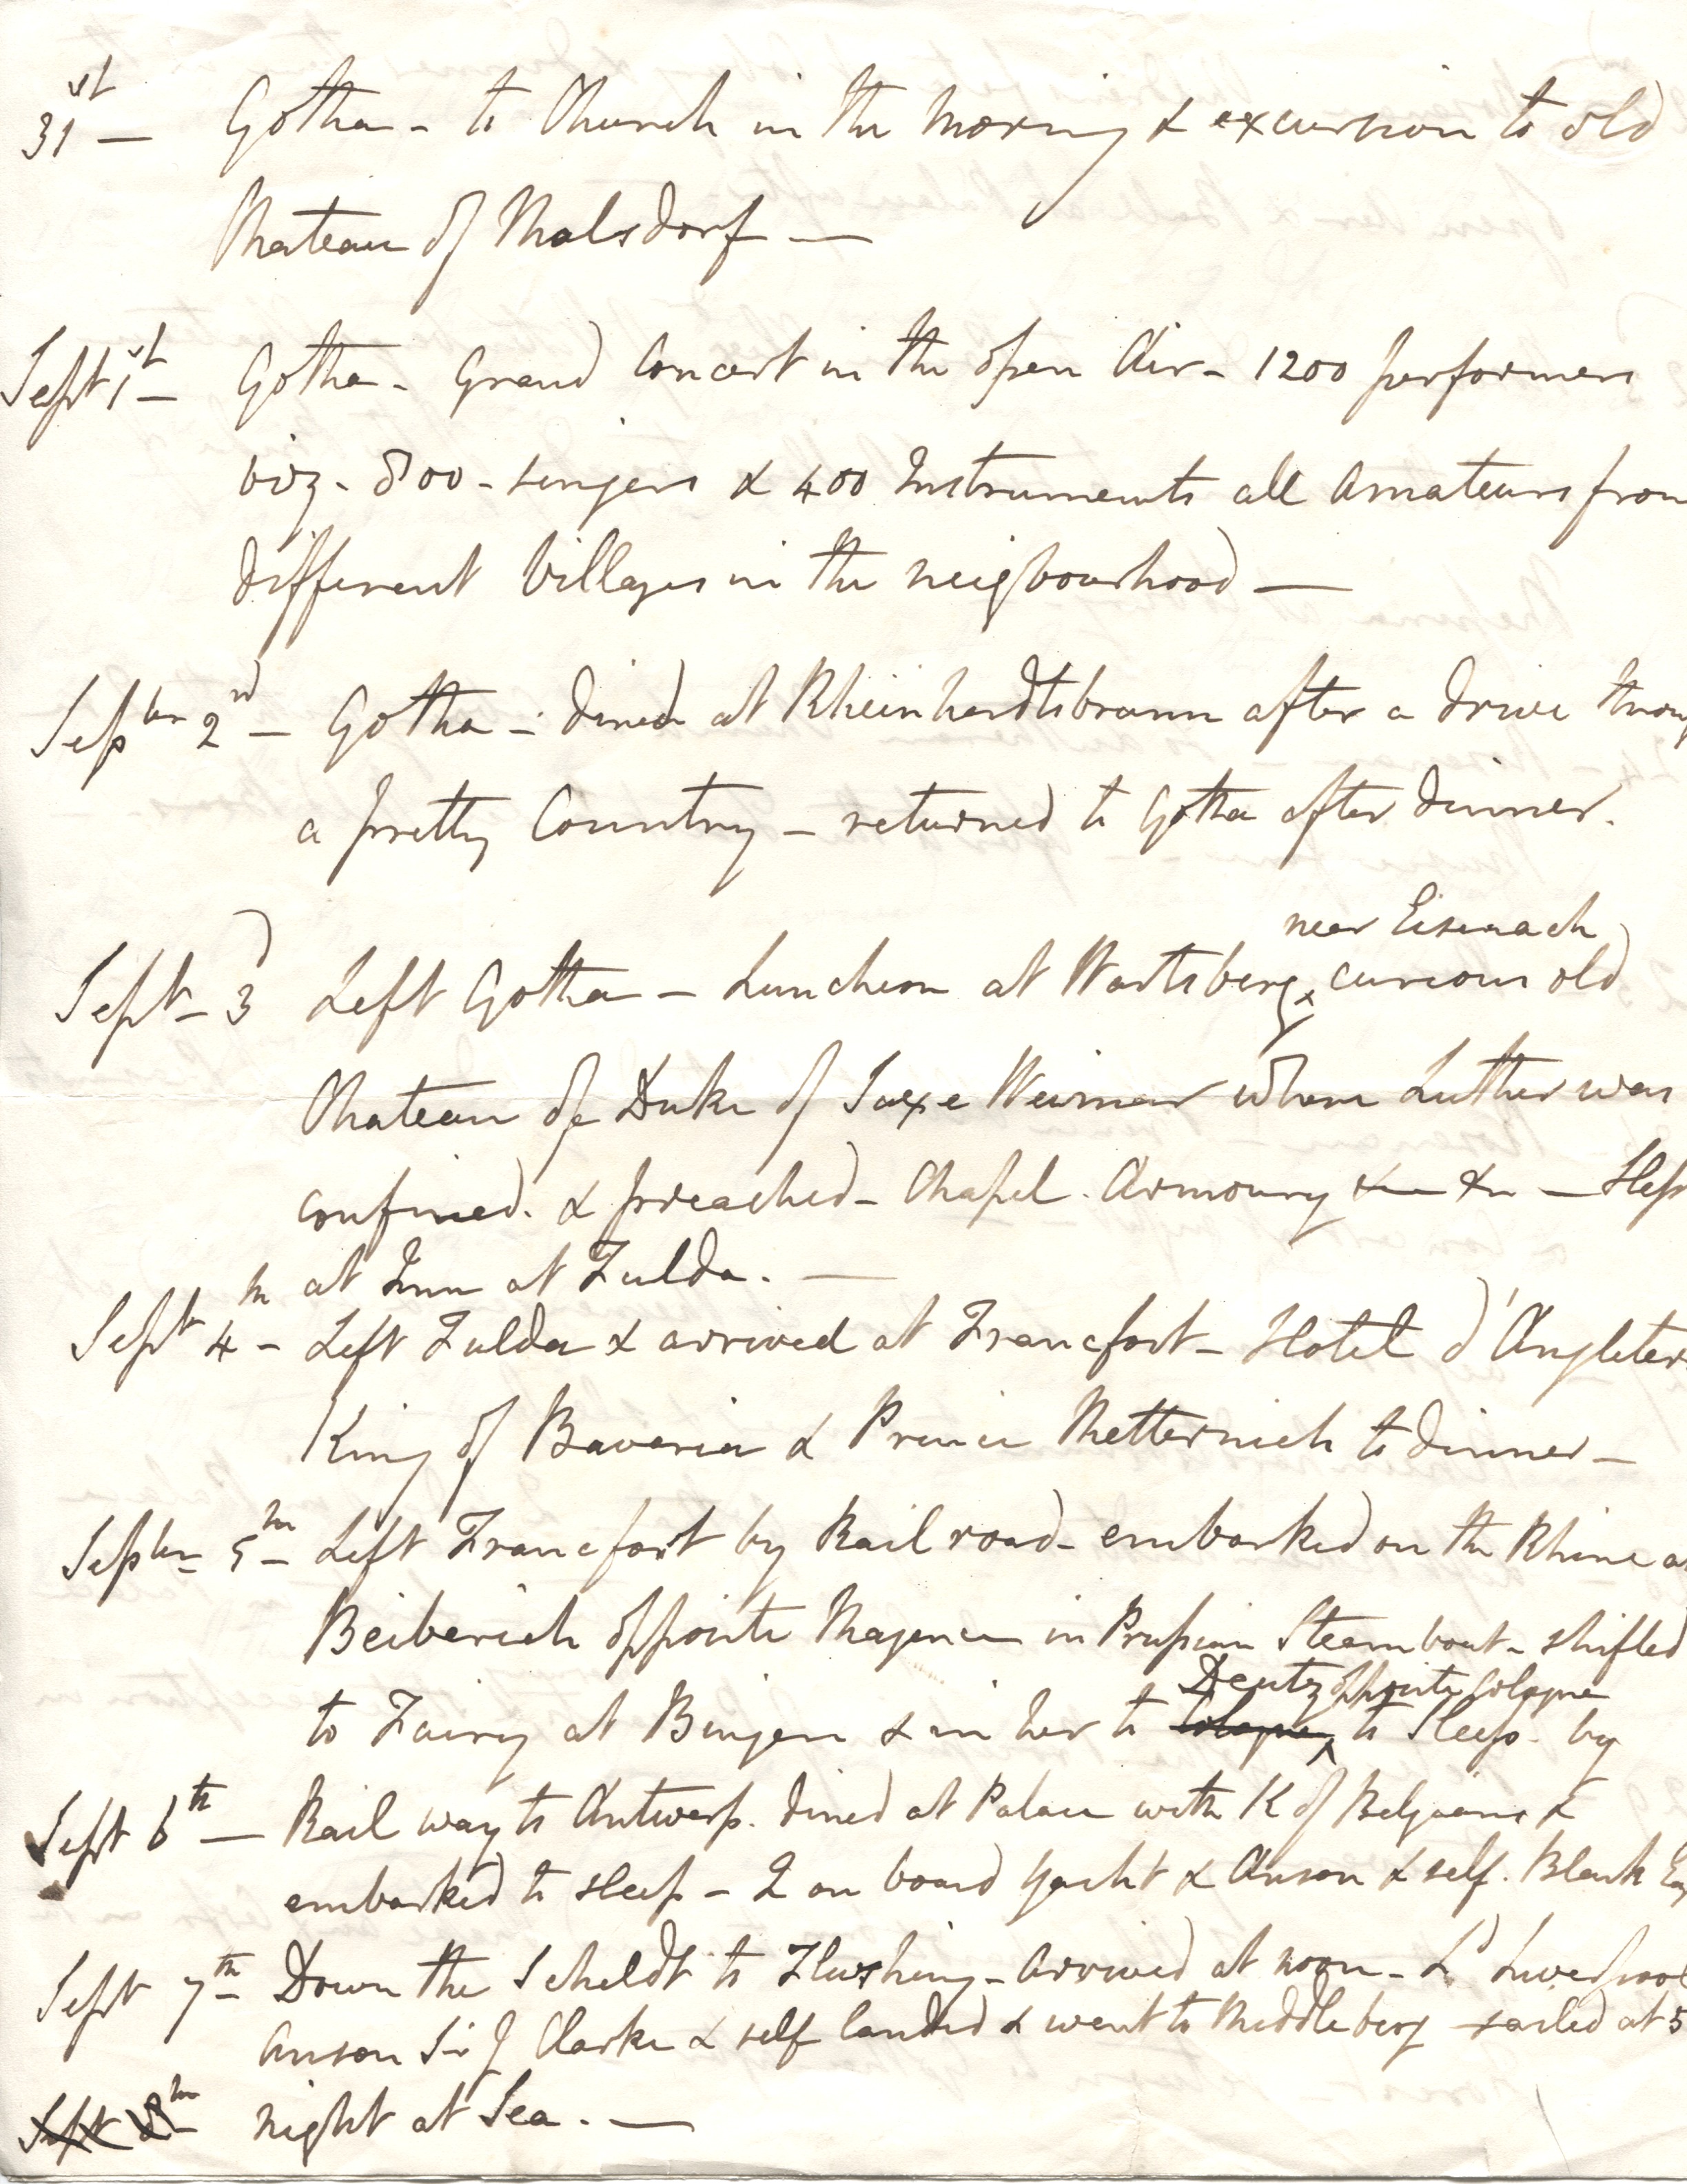 31st — Gotha - to Church in the Morning & excursion to old
Chateau of Molsdorf —
Sept 1st — Gotha - Grand Concert in the open Air - 1200 performers
viz - 800 - singers & 400 Instruments all Amateurs from
different Villages in the neigbourhood —
Sepber 2nd — Gotha - dined at Rheinhardtsbrunn after a drive throug
a pretty Country - returned to Gotha after dinner.
near Eisenach
Sept - 3d Left Gotha - Luncheon at Wartsberg, curious old
Chateau of Duke of Saxe Weimar where Luther was
confined. & preached - Chapel. Armoury &c &c — Slept
at Inn at Fulda. —
Sept 4th - Left Fulda & arrived at Francfort - Hotel d'Angleter
King of Bavaria & Prince Metternich to dinner —
Sepber 5th - Left Francfort by Rail road - embarked on the Rhine a
Beiberich opposite Mayence in Prussian Steam boat - shifted
Deutz opposite Cologne
to Fairy at Bingen & in her to Cologne, to Sleep. by
Sept 6th — Rail way to Antwerp. dined at Palace with K of Belgians &
embarked to sleep - Q on board Yacht & Anson & self. Black Eag
Sept 7th - Down the Scheldt to Flushing - arrived at noon - Ld Liverpool
Anson Sir J Clarke & self landed & went to Middleberg - sailed at 5
Sept 8th - night at Sea. —